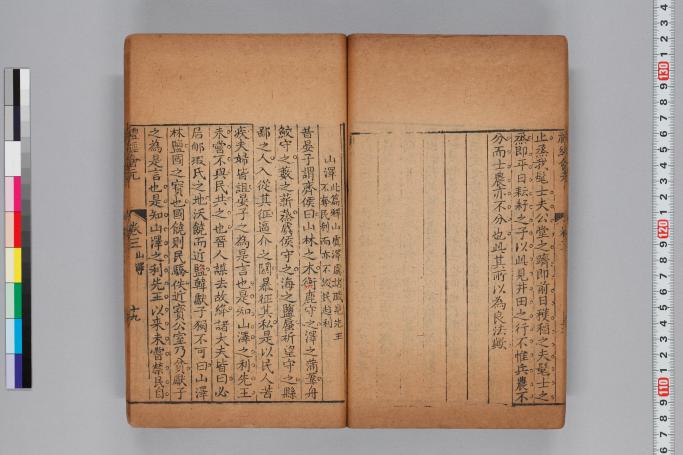 止烝我髦士夫公堂之躋即前日穫稻之夫髦士之
烝即平日耘耔之子以此見井田之行不惟兵農不
分而士農亦不分也此其所以為良法歟
山澤
此篇解山虞澤虞諸職見先王
不奪民利而亦不縱民趨利
昔晏子謂齊侯曰山林之木衡鹿守之澤之萑蒲舟
鮫守之藪之薪蒸虞侯守之海之鹽蜃祈望守之縣
鄙之人入從其征逼介之關暴征其私是以民人苦
疾夫婦皆詛晏子之為是言也是知山澤之利先王
未嘗不與民共之也晉人謀去故絳諸大夫皆曰必
居郇瑕氏之地沃饒而近鹽韓獻子獨不可曰山澤
林鹽國之寶也國饒則民驕佚近寶公室乃貧獻子
之為是言也是知山澤之利先王以來未嘗禁民自
禮經會元
卷三
山澤
十九